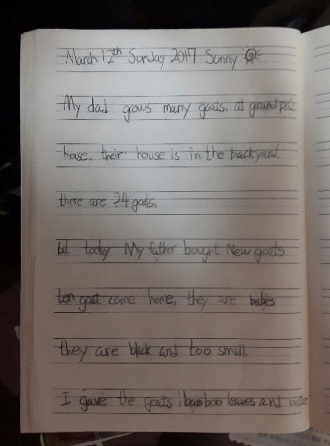 March 12th Sunday 2017 Sunny
My dad grows many goats. at grandpa's
house. their house is in the backyard.
there are 24 goats.
but today My father bought New goats
ten goat come home. they are babies
they are black and too small.
I gave the goats bamboo leaves and water